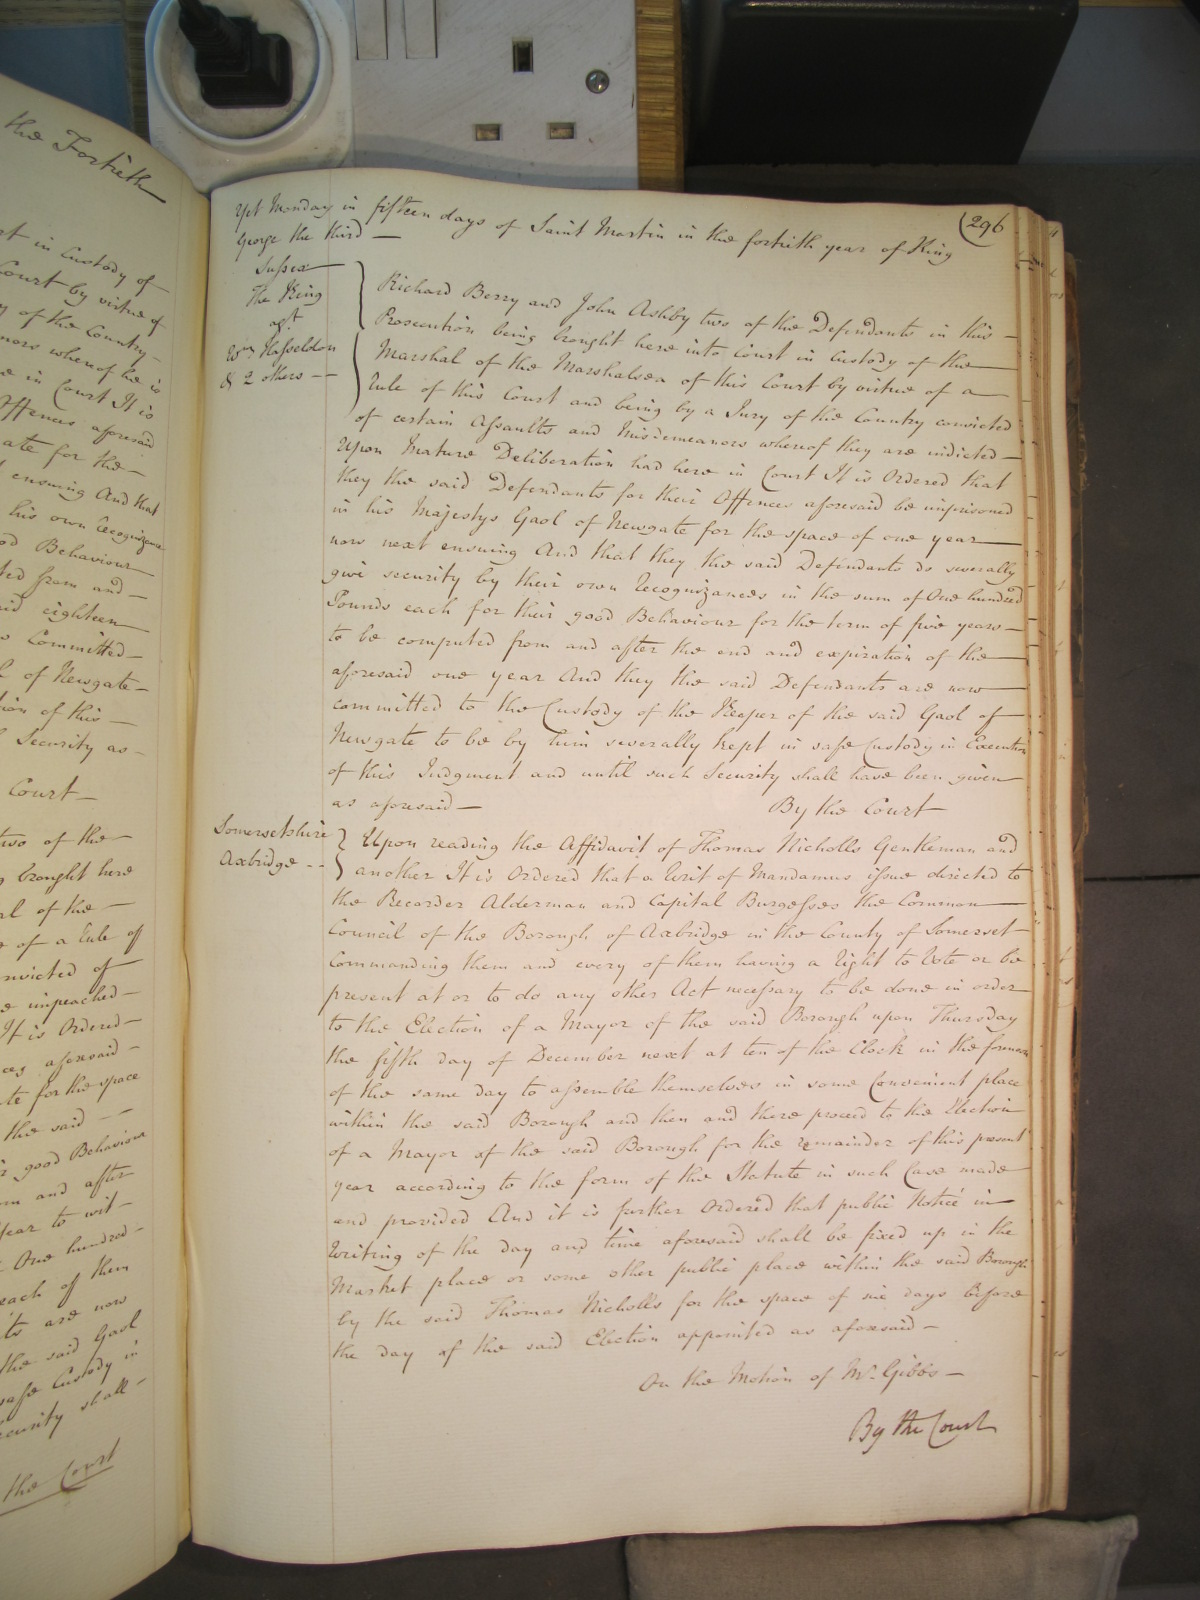 the Fortieth
rt in Custody of
Court by virtue of
y of the Country
nors whereof he is
e in Court It is
Offences aforesaid
ate for the
ensuing And that
his own Recognizance
od Behaviour
ted from and
aid eighteen
Committed
of Newgate
ion of this
Security as
Court
two of the
g brought here
al of the
e of a Rule of
nvicted of
e impeached
It is Ordered
ces aforesaid
te for the space
the said
good Behaviour
om and after
Year to wit
One hundred
each of them
ts are now
the said Gaol
safe Custody in
ecurity shall
the Court
296
Yet Monday in fifteen days of Saint Martin in the fortieth year of King
George the third
Sussex
The King
agt
Wm Hasseldon
& 2 others
Richard Berry and John Ashby two of the Defendants in this
Prosecution being brought here into Court in Custody of the
Marshal of the Marshalsea of this Court by virtue of a
Rule of this Court and being by a Jury of the Country convicted
of certain Assaults and Misdemeanors whereof they are indicted
Upon Mature Deliberation had here in Court It is Ordered that
they the said Defendants for their Offences aforesaid be imprisoned
in his Majestys Gaol of Newgate for the space of one year
now next ensuing And that they the said Defendants do severally
give security by their own Recognizances in the sum of One hundred
Pounds each for their good Behaviour for the term of five years
to be computed from and after the end and expiration of the
aforesaid one year And they the said Defendants are now
committed to the Custody of the Keeper of the said Gaol of
Newgate to be by him severally kept in safe Custody in Execution
of this Judgment and until such Security shall have been given
as aforesaid
By the Court
Somersetshire
Axbridge
Upon reading the Affidavit of Thomas Nicholls Gentleman and
another It is Ordered that a Writ of Mandamus issue directed to
the Recorder Alderman and Capital Burgesses the Common
Council of the Borough of Axbridge in the County of Somerset
Commanding them and every of them having a Right to Vote or be
present at or to do any other Act necessary to be done in order
to the Election of a Mayor of the said Borough upon Thursday
the fifth day of December next at ten of the Clock in the forenoon
of the same day to assemble themselves in some Convenient place
within the said Borough and then and there proceed to the Election
of a Mayor of the said Borough for the remainder of this present
year according to the form of the Statute in such Case made
and provided And it is further Ordered that public Notice in
Writing of the day and time aforesaid shall be fixed up in the
Market place or some other public place within the said Borough
by the said Thomas Nicholls for the space of six days before
the day of the said Election appointed as aforesaid
On the Motion of Mr Gibbs
By the Court